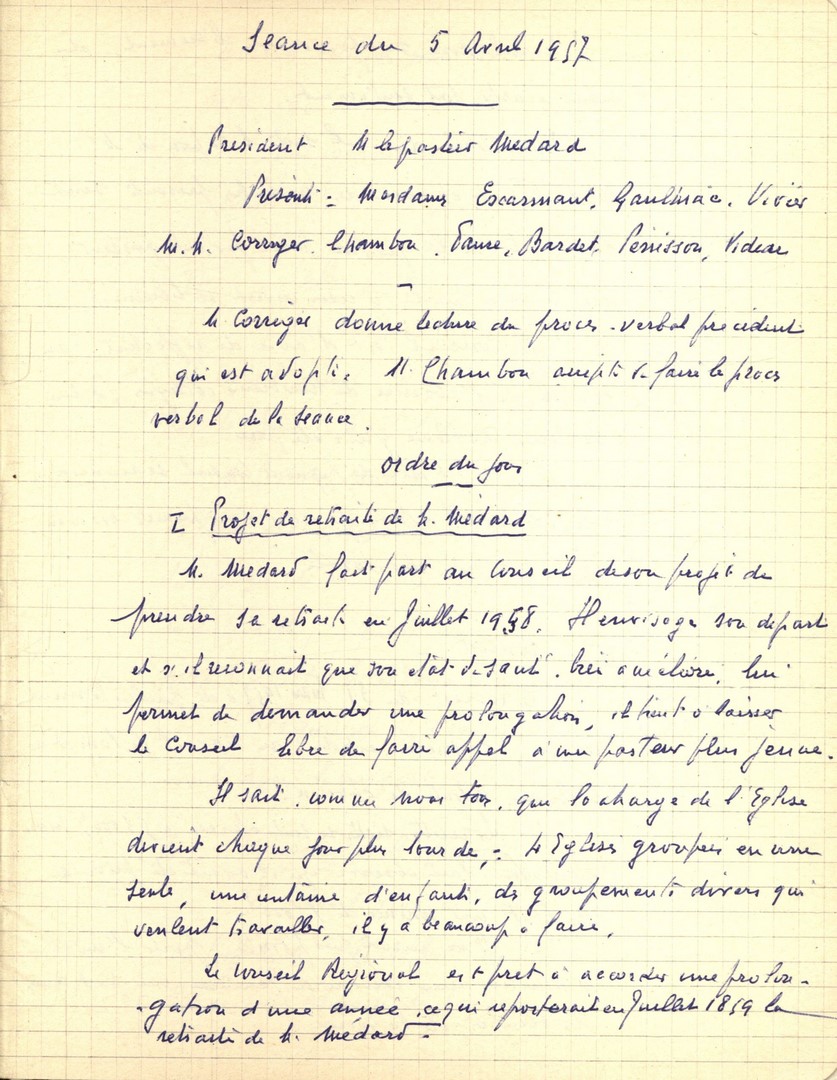 Séance du 5 Avril 1957
Président M le pasteur Médard
Présents : Mesdames Escarmant, Gaulmiac, Vivier
M.M. Corriger, Chambon, Faure, Bardet, Pénisson, Videau
M Corriger donne lecture du procès-verbal précédent
qui est adopté. M. Chambon accepte de faire le procès
verbal de la séance.
Ordre du jour
I Projet de retraite de M. Médard
M. Médard fait part au Conseil de son projet de
prendre sa retraite en Juillet 1958. Il envisage son départ
et s'il reconnait que son état de santé, très amélioré, lui
permet de demander une prolongation, il tient à laisser
le Conseil libre de faire appel à un pasteur plus jeune.
Il sait, comme nous tous, que la charge de l'Eglise
devient chaque jour plus lourde, : 4 Eglises groupées en une
seule, une centaine d'enfants, des groupements divers qui
veulent travailler, il y a beaucoup à faire.
Le Conseil Régional est prêt à accorder une prolon-
-gation d'une année, ce qui reporterait en Juillet 1859 la
retraite de M. Médard -